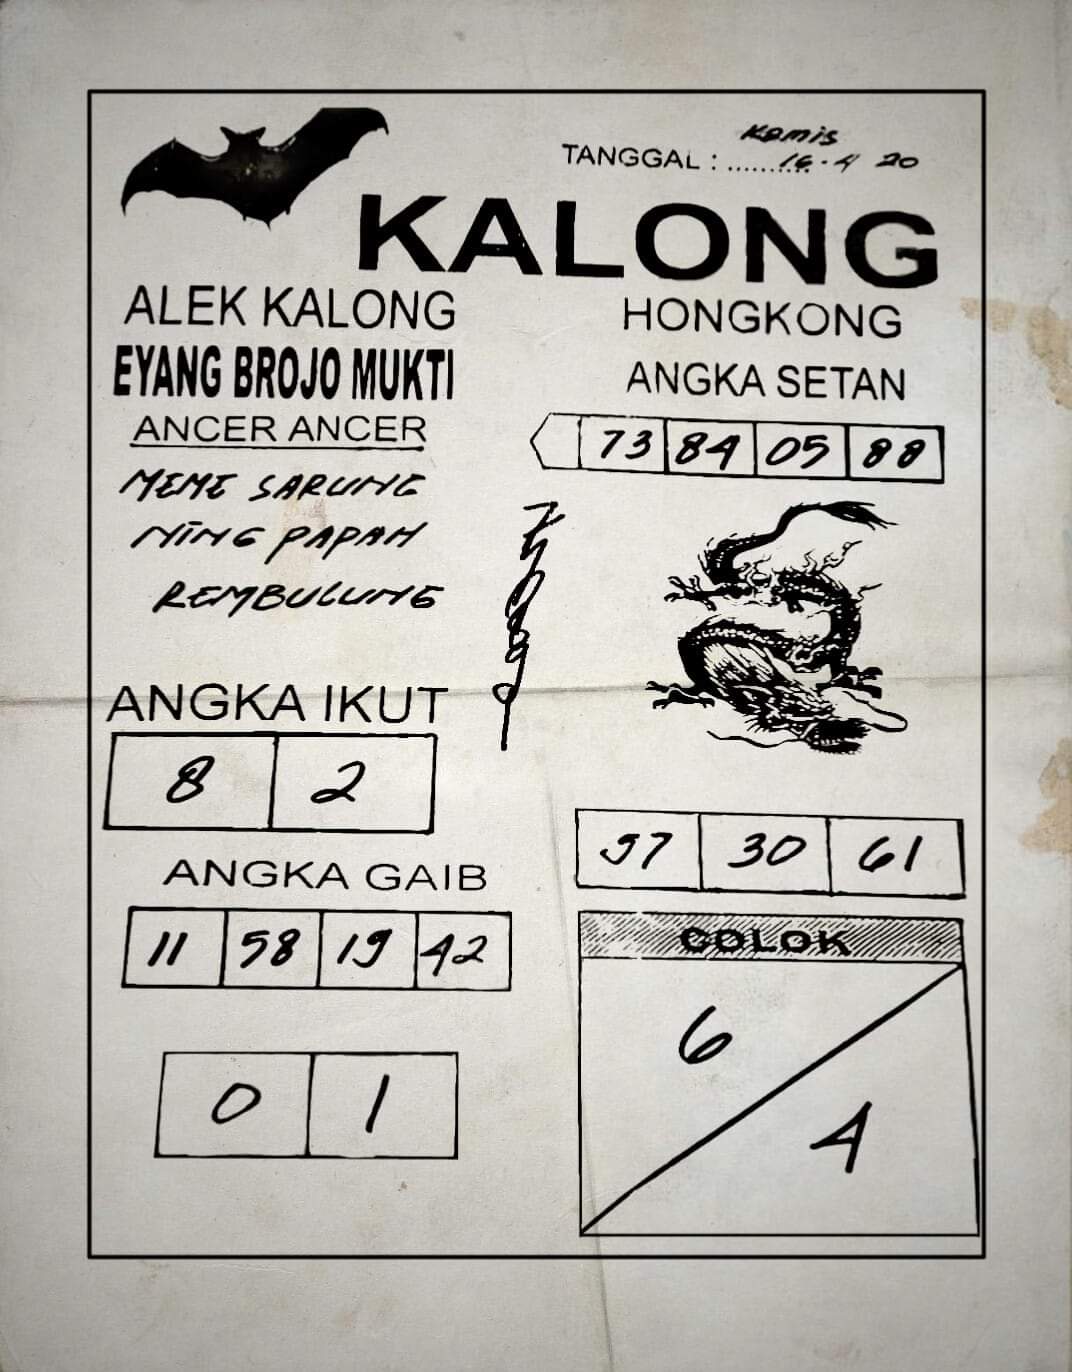 Kamis
TANGGAL : .......... 16 - 4 20
KALONG
ALEK KALONG
EYANG BROJO MUKTI
ANCER ANCER
MEME SARUNG
NING PAPAH
REMBULUNG
HONGKONG
ANGKA SETAN
73 84 05 88
ANGKA IKUT
8 2
ANGKA GAIB
11 58 19 42
0 1
37 30 61
COLOK
6
4